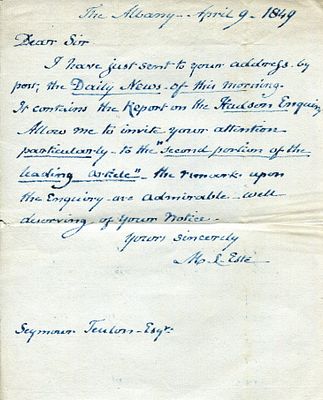 The Albany - April 9 - 1849
Dear Sir
I have just sent to your address - by
post; the Daily News - of this morning.
It contains the Report on the Hudson Enquiry
Allow me to invite your attention
particularly - to the "Second portion of the
leading article" - the remarks upon
the Enquiry - are admirable - well
deserving of Your Notice -
Yours Sincerely
M. L. Esté
Seymour Teulon - Esqr.